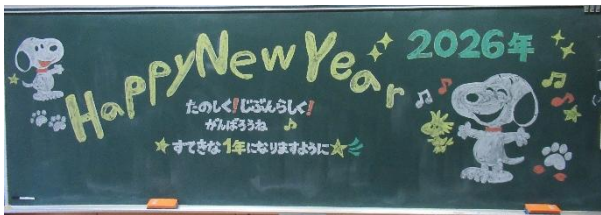 Happy New Year
2026年
たのしく!じぶんらしく!
がんばろうね
すてきな1年になりますように